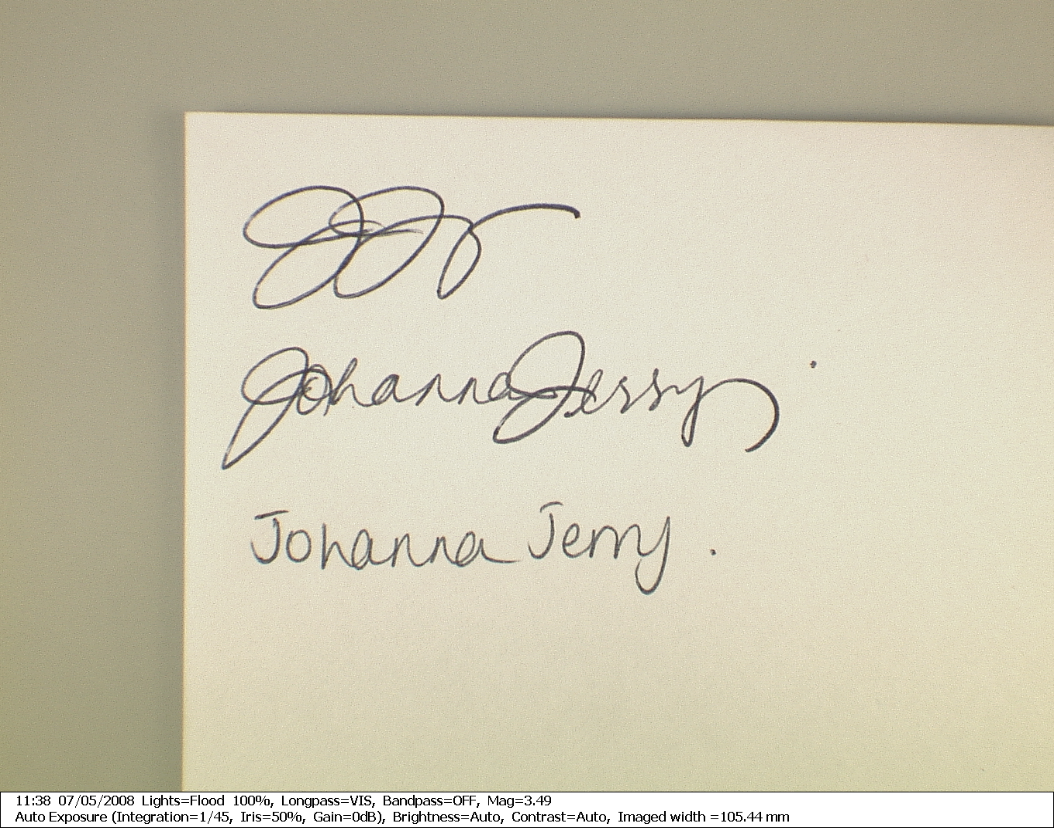 Johanna Jerry.
Johanna Jerry.
11:38 07/05/2008 Lights=Flood 100%, Longpass=VIS, Bandpass=OFF, Mag=3.49
Auto Exposure (Integration=1/45, Iris=50%, Gain=0dB), Brightness=Auto, Contrast=Auto, Imaged width =105.44 mm